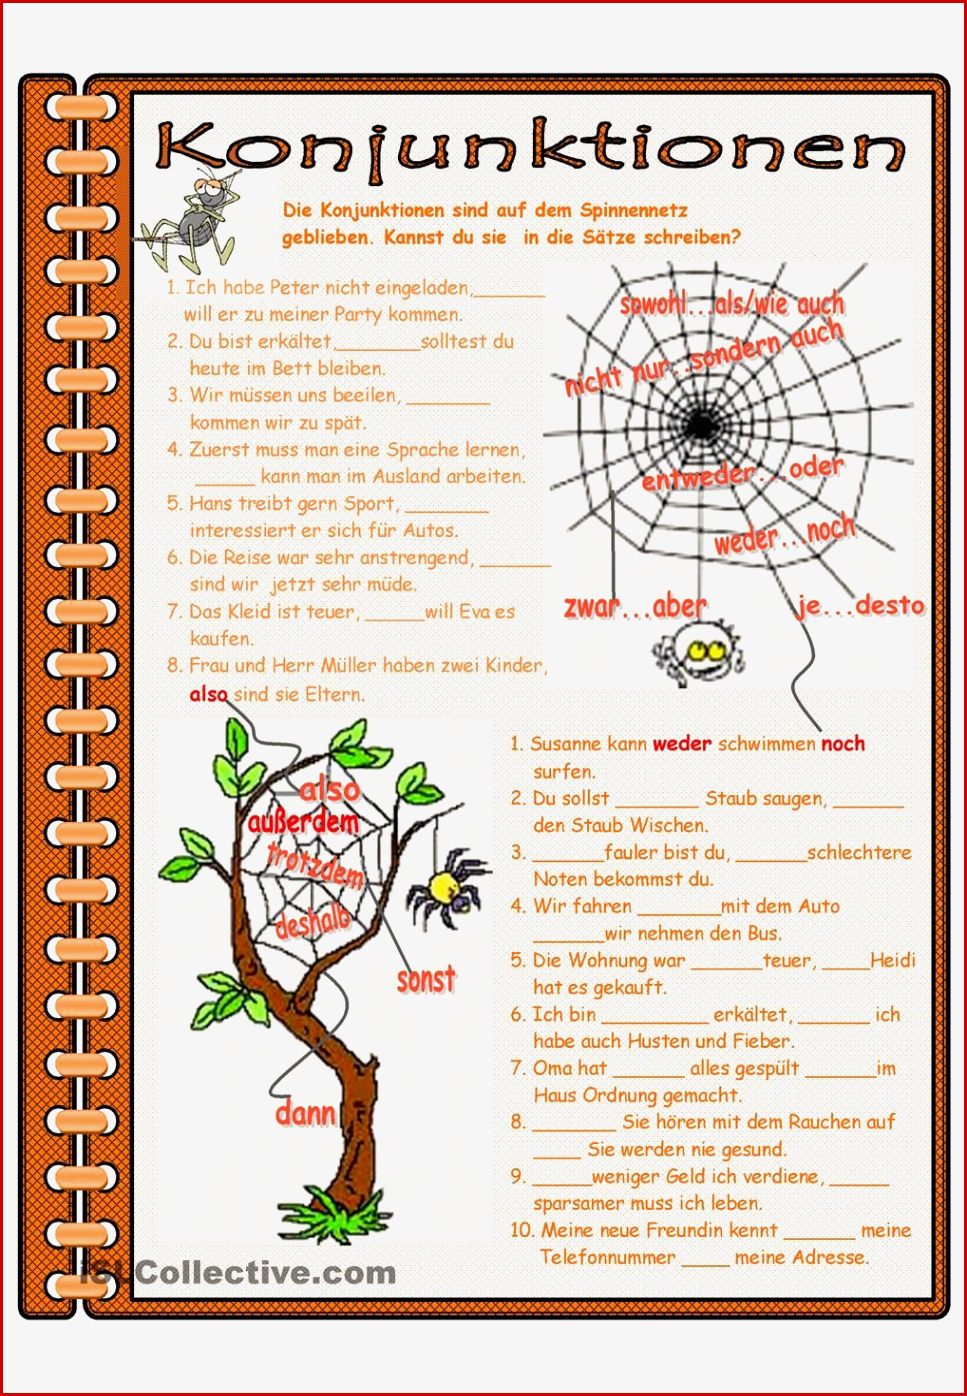 Konjunktionen
Die Konjunktionen sind auf dem Spinnennetz
geblieben. Kannst du sie in die Sätze schreiben?
1. Ich habe Peter nicht eingeladen,_______
will er zu meiner Party kommen.
2. Du bist erkältet,________solltest du
heute im Bett bleiben.
3. Wir müssen uns beeilen, ________
kommen wir zu spät.
4. Zuerst muss man eine Sprache lernen,
______ kann man im Ausland arbeiten.
5. Hans treibt gern Sport, ________
interessiert er sich für Autos.
6. Die Reise war sehr anstrengend, _______
sind wir jetzt sehr müde.
7. Das Kleid ist teuer, ______will Eva es
kaufen.
8. Frau und Herr Müller haben zwei Kinder,
also sind sie Eltern.
sowohl...als/wie auch
nicht nur...sondern auch
entweder...oder
weder...noch
zwar...aber
je...desto
also
außerdem
trotzdem
deshalb
sonst
dann
1. Susanne kann weder schwimmen noch
surfen.
2. Du sollst ________ Staub saugen, _______
den Staub Wischen.
3. _______fauler bist du, _______schlechtere
Noten bekommst du.
4. Wir fahren ________mit dem Auto
_______wir nehmen den Bus.
5. Die Wohnung war _______teuer, _____Heidi
hat es gekauft.
6. Ich bin __________ erkältet, _______ ich
habe auch Husten und Fieber.
7. Oma hat _______ alles gespült _______im
Haus Ordnung gemacht.
8. ________ Sie hören mit dem Rauchen auf
_____ Sie werden nie gesund.
9. ______weniger Geld ich verdiene, ______
sparsamer muss ich leben.
10. Meine neue Freundin kennt _______ meine
Telefonnummer _____ meine Adresse.
iSLCollective.com